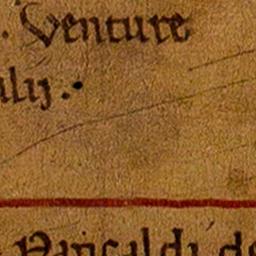 . Venture
ulij .
Pancaldi de